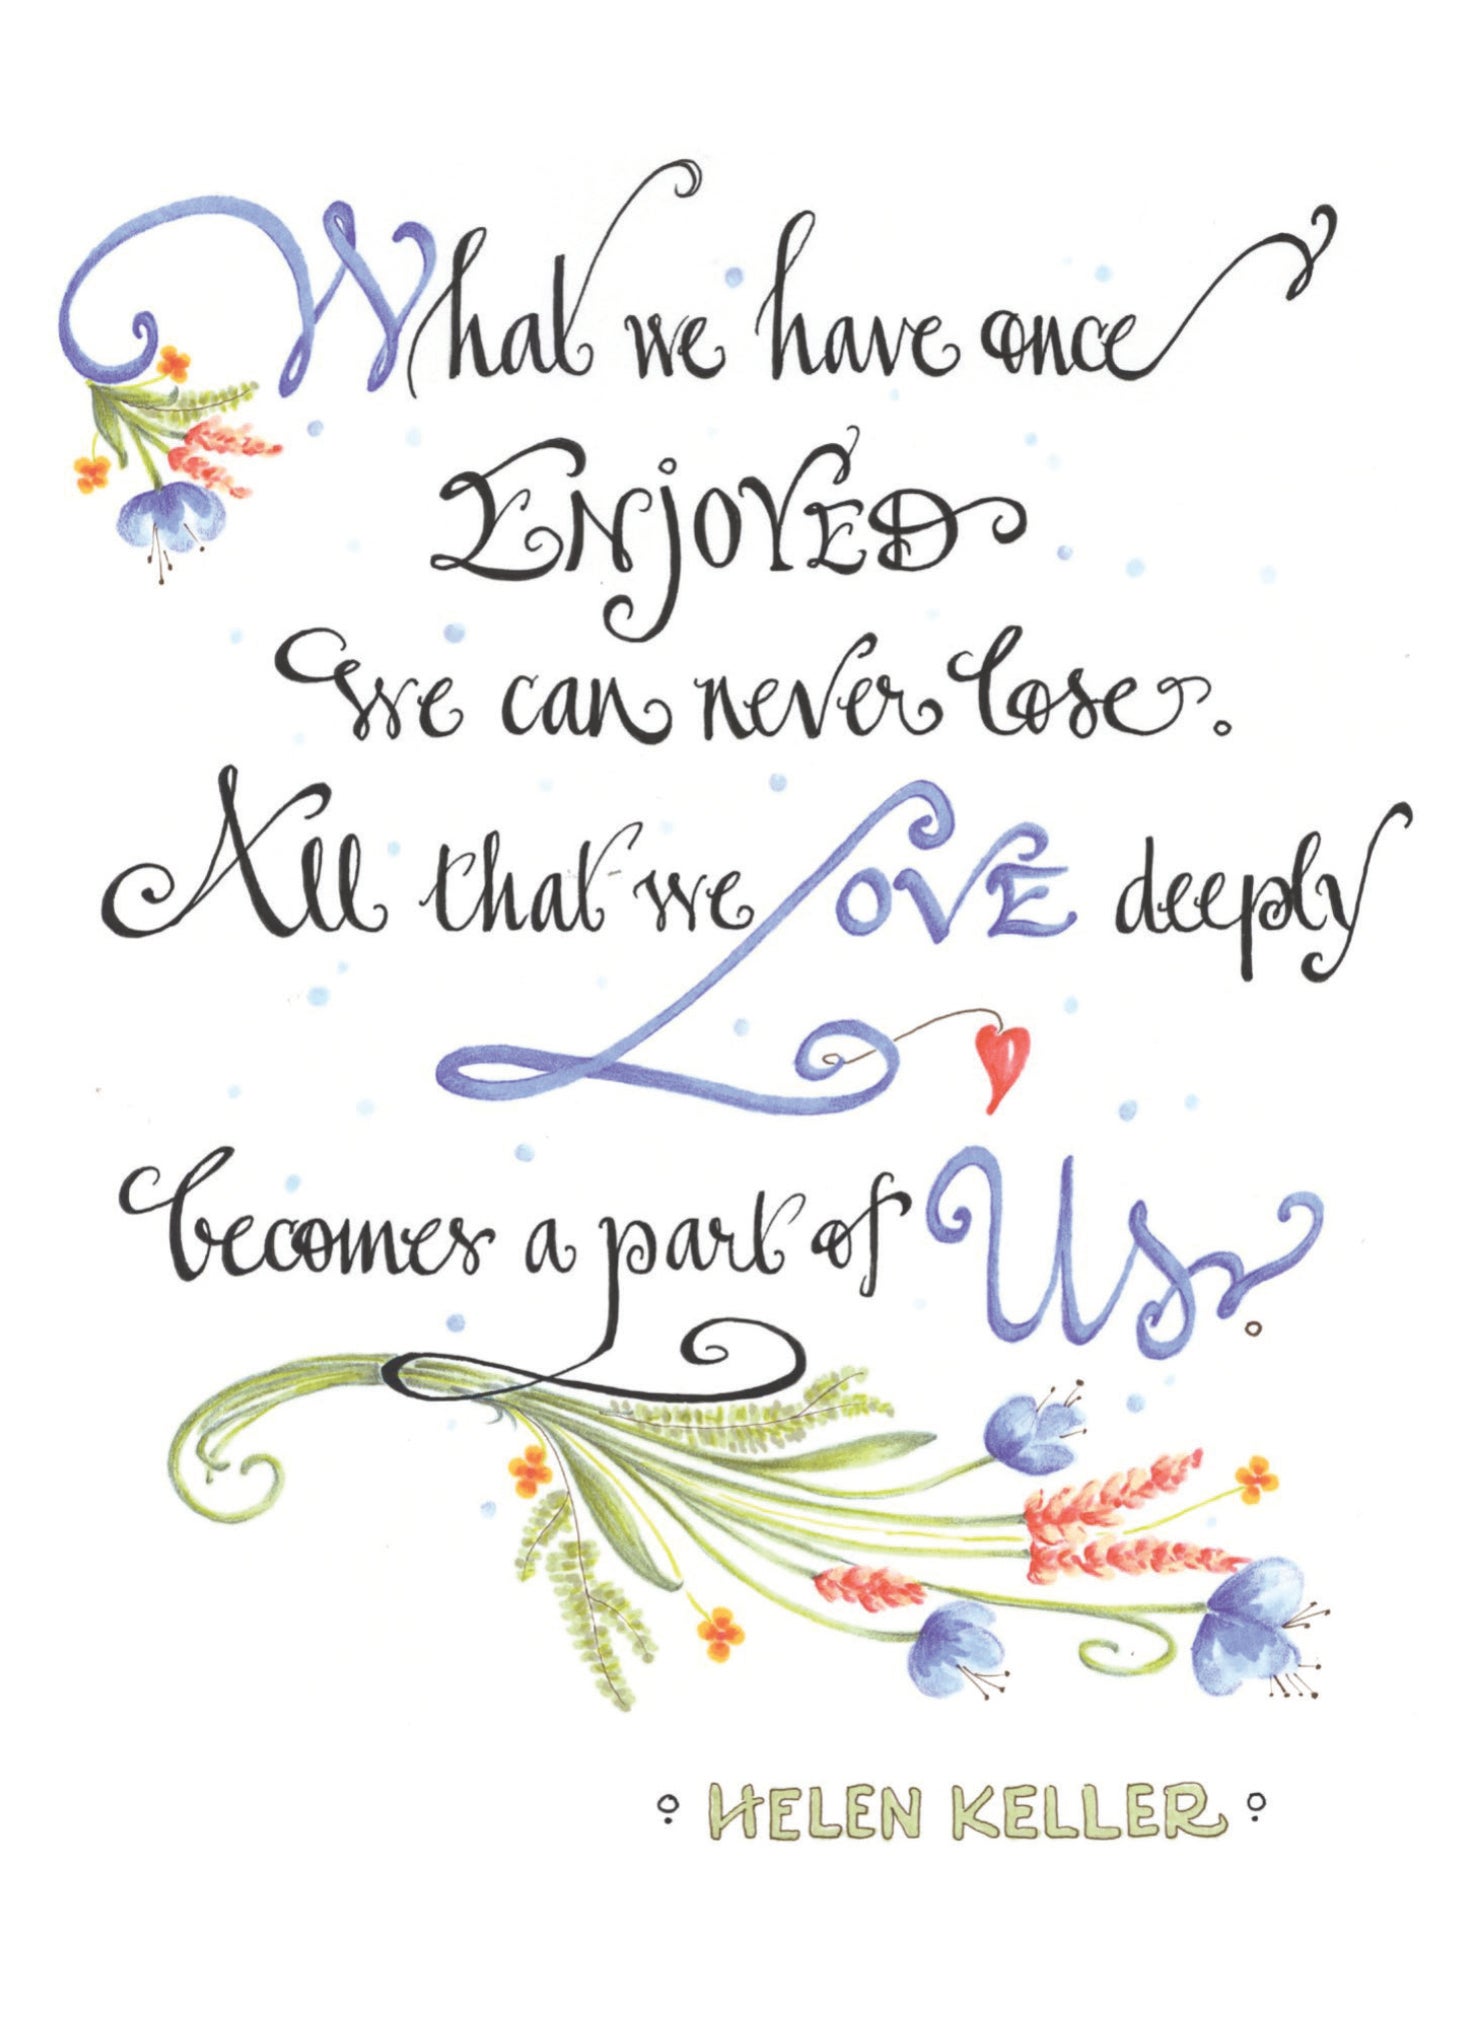 What we have once
ENJOYED
we can never lose.
All that we LOVE deeply
becomes a part of Us.
HELEN KELLER